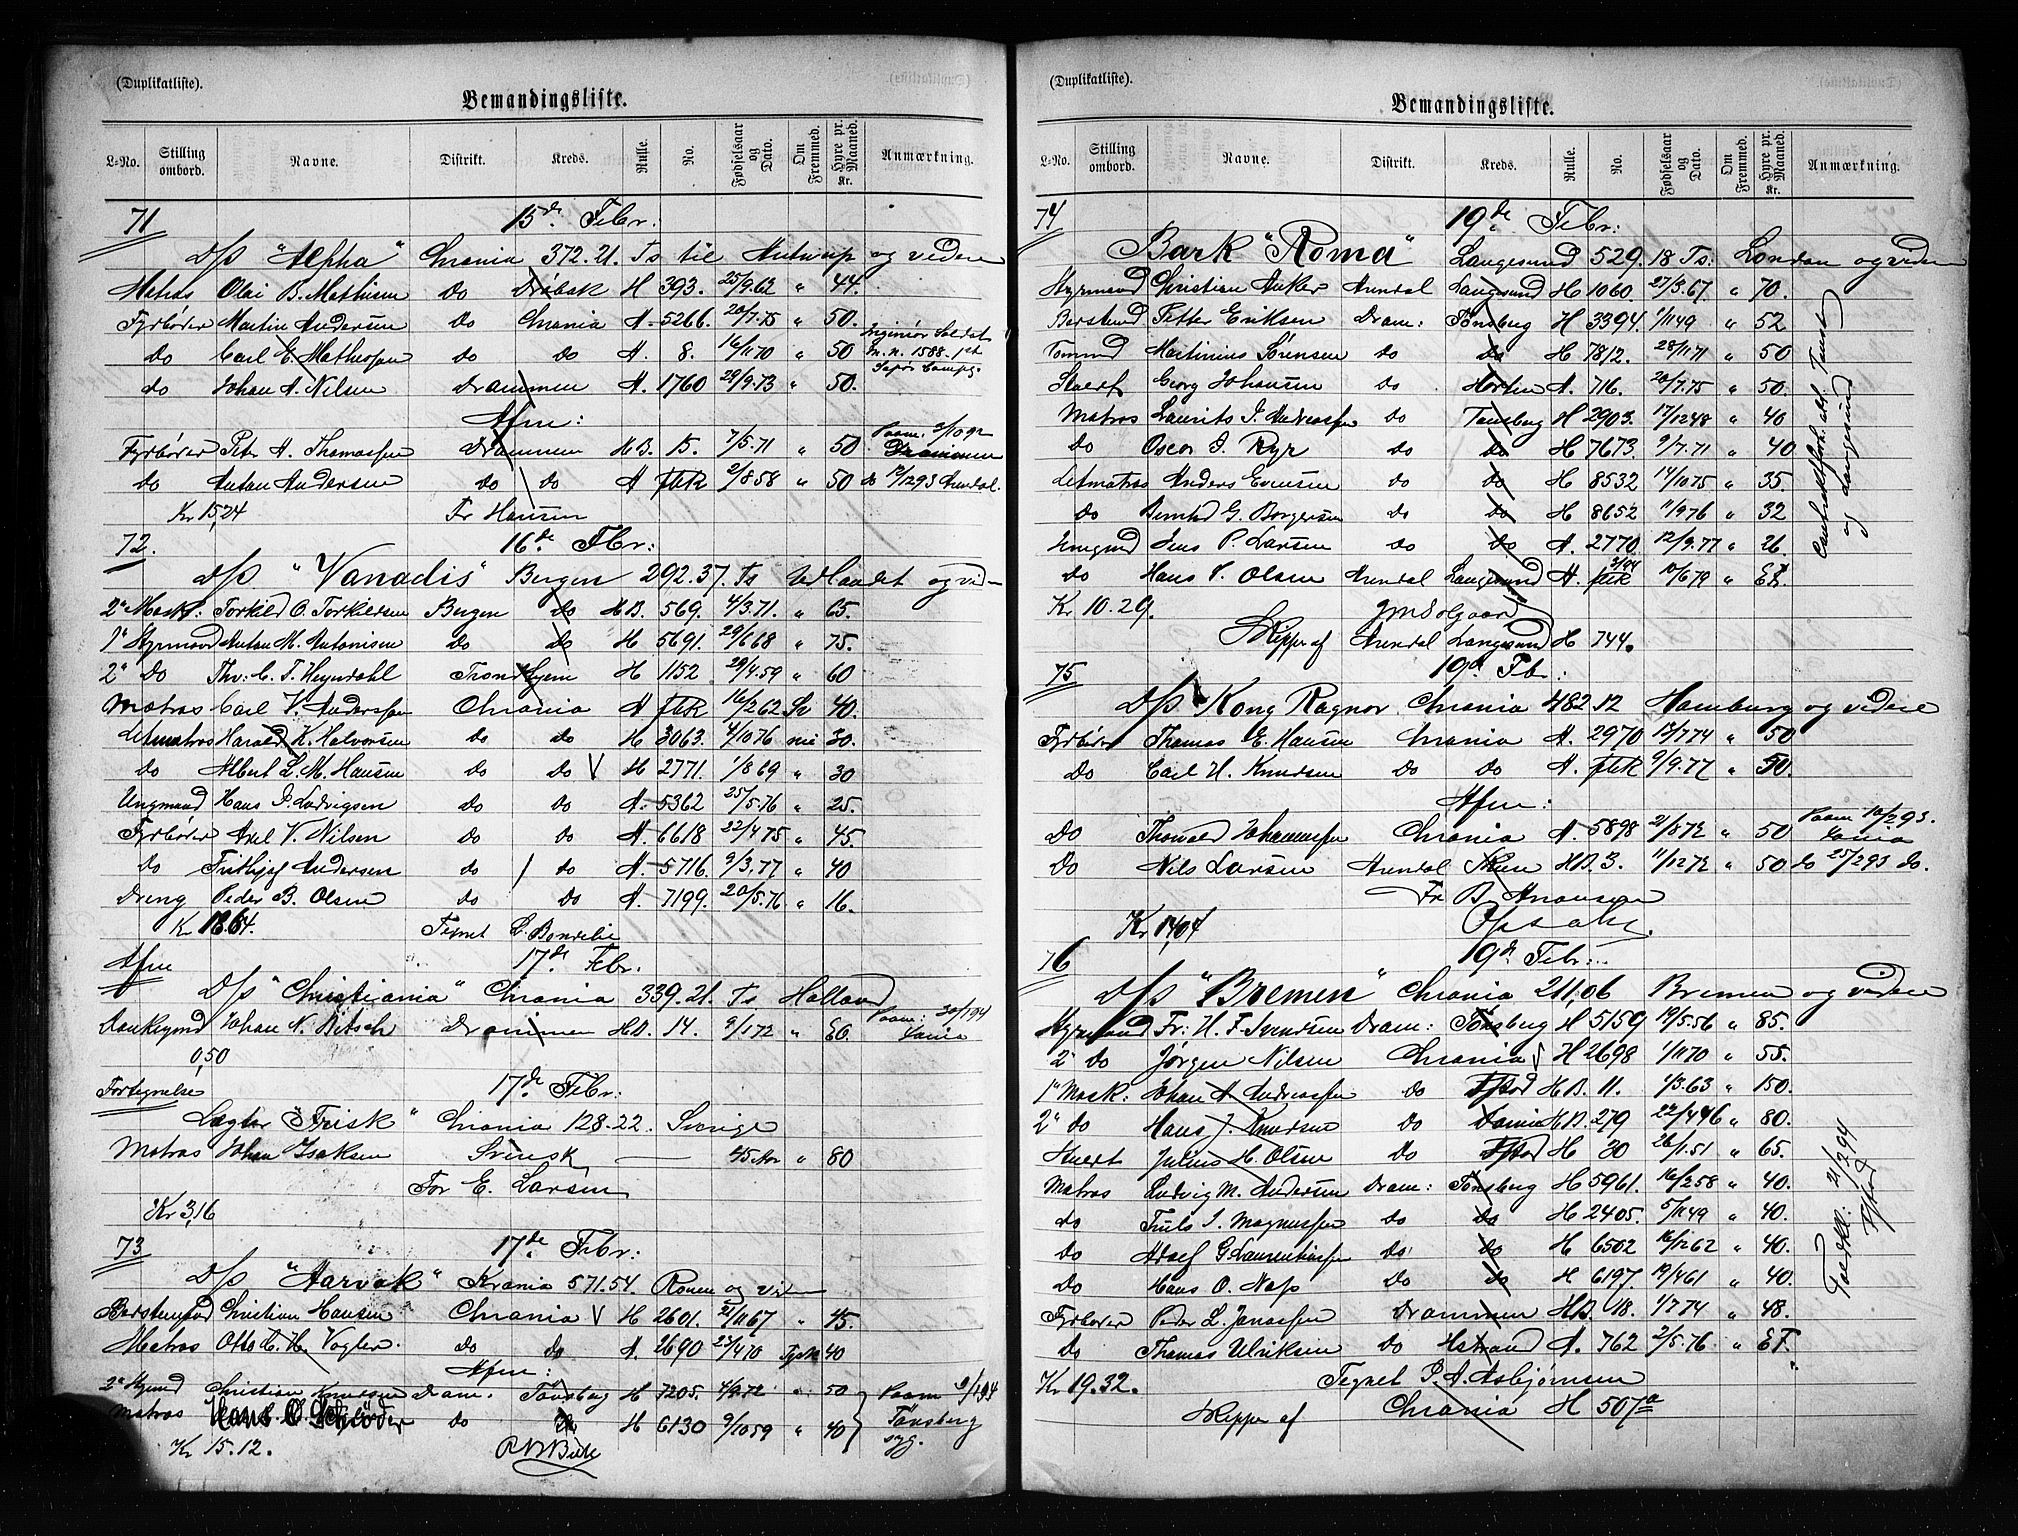 (Duplikatliste).
Bemandingsliste.
L-No. Stilling ombord. Navne. Distrikt. Kreds. Rulle. No. Fødselsaar og Dato. Om Fremmed. Hyre pr. Maaned. Kr. Anmærkning.
71 15de Febr:
D/S "Alpha" Chrania 372.21. Ts til Antwerp og videre
Matros Olai B. Mathisen Do Drøbak H 393. 25/9.62 " 44.
Fyrbøder Martin Andersen Do Chrania A. 5266. 20/7.75 " 50.
do Carl E. Mathessen do do A. 8. 16/1170 " 50 Ingeniør Soldat M.N. 1588. 1st Sapør Compg.
do Johan A. Nilsen Drammen A. 1760 29/9.73 " 50.
Afm:
Fyrbøder Peter A. Thomassen Drammen H.B. 15. 7/5.71 " 50 Paam. 3/1092 Drammen
do Anton Andersen do do A ftk 2/858 " 50 do 12/1293 Arendal.
Kr 15,24 Fr Hansen
72. 16de Fbr:
D/S "Vanadis" Bergen 292.37. Ts Udlandet og vid
2' Mask: Torkild O. Torkildsen Bergen do H.B. 569. 4/3.71. " 65.
1' Styrmand Anton M. Antonisen do do H 5691. 29/668 " 75.
2' Do Thv: C. T. Heyerdahl Trondhjem H 1152 29/4.59 " 60
Matros Carl V. Anderssen Chrania A ftk 16/262 Sv 40.
Letmatros Harald K. Halvorsen do do H 3063. 4/1076 nei 30.
do Albert L. M. Hansen do do V H 2771. 1/869 " 30
Ungmand Hans P. Ludvigsen do do A. 5362 25/5.76 " 25.
Fyrbøder Axel V. Nilsen do do A. 6618 22/475 " 45.
do Frithjof Andersen do / do A. 5716 9/3.77 " 40
Dreng Peder B. Olsen do do A. 7199. 20/5.76 " 16.
Kr 18.64. Tegnet C. Bondelie
Afm 17de Febr.
D/S "Christiania" Chrania 339.21. Ts Holland
Donkeymd Johan N. Bitsch Drammen H.B. 14. 9/172 " 60. Paam: 30/194 Xania
0,50
Fortegnelse 17de Febr:
Lægter "Frisk" Chrania 128-22. Sverige
Matros Johan Isaksen Svensk 45 Aar " 80
For E. Larsen
Kr 3,16
73 17de Febr:
D/S "Aarvak" Krania 571.54. Rouen og vid
Baadsmand Christian Hansen Chrania V H 2601. 21/1167 " 45.
Matros Otto C. H. Vogler. do do A. 2690 23/470 Tysk 40
Afm.
2' Stymd Christian Knudsen Dram. Tønsberg H 7205. 4/972 " 50 Paam 9/194
Matros Hans O. Schrøder do do H 6130 9/1059 " 40 Tønsberg syg.
Kr 15.12.
(Duplikatliste).
Bemandingsliste.
L-No. Stilling ombord. Navne. Distrikt. Kreds. Rulle. No. Fødselsaar og Dato. Om Fremmed. Hyre pr. Maaned. Kr. Anmærkning.
74 19de Febr:
Bark "Roma" Langesund 529.18 Ts: London og videre
Styrmand Christian Anker Arendal Langesund H 1060. 27/3.67 " 70.
Baadsmd Petter Eriksen Dram: Tønsberg H 3394. 1/1149 " 52
Tømmd Martinius Sørensen do do H 7812. 28/1171 " 50
Stuert Georg Johansen do Horten A. 716. 20/7.75 " 50.
Matros Laurits I. Andreassen do Tønsberg H 2903. 17/1248 " 40
do Oscar I. Ryr do do H 7673. 9/7.71 " 40
Letmatros Anders Evensen do do H 8532 14/1075 " 35.
do Bernhd G. Borgersen do do H 8652 11/976 " 32
Jungmd Jens P. Larsen do do A. 2770. 12/9.77 " 26.
do Hans V. Olsen Arendal Langesund A. ftk 10/679 "
og Langesund
Kr 10.29. Solgaard
Skipper af Arendal Langesund H 744.
75 19de Fbr:
D/S Kong Ragnar Chrania 482.12 Hamburg og videre
Fyrbøder Thomas E. Hansen Chrania A. 2970 15/774 " 50
Do Carl H. Knudsen Do Do A. ftk 9/9.77 " 50.
Afm:
Do Thorvald Johannessen Chrania A. 5898 21/872 " 50 Paam 10/293. Xania
Do Nils Larsen Arendal Skien H.B. 3. 11/1272 " 50 do 25/293 do.
Fr B. Aronsen
Kr 14,04 Opsahl.
76 19de Febr:
D/S "Bremen" Chrania 211,06 Bremen og videre
Styrmand Fr: H. F. Svendsen Dram: Tønsberg H 5159 19/5.56 " 85.
2' do Jørgen Nilsen Chrania V H 2698 1/1170 " 55.
1' Mask: Johan A. Andreassen do Fstad H.B. 11. 1/3.63 " 150.
2' do Hans J. Knudsen do Xania H.B. 279 " 80.
Stuert Julius H. Olsen Do Fstad H 30 26/1.51 " 65.
Matros Ludvig M. Andersen Dram: Tønsberg H 5961. 16/258 " 40.
do Truls I. Magnussen do do H 2405. 5/1149 " 40.
do Adolf G. Laurentiussen do do H 6502 16/1262 " 40.
Do Hans O. Næs Do do H 6197. 19/461 " 40.
Fyrbøder Peder L. Jonassen Drammen H.B. 18. 1/774 " 48.
do Thomas Ulriksen Do Hstrand A. 762 2/5.76 "
21/294 Fstad
Kr 19.32. Tegnet P. A. Asbjørnsen
Skipper af Chrania H 507a